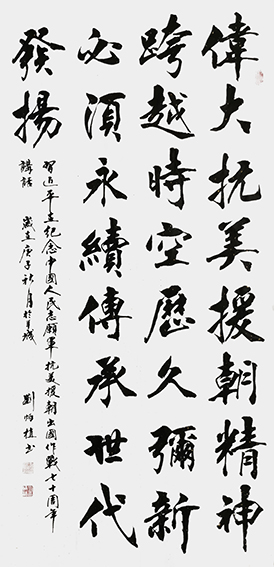 偉大抗美援朝精神
跨越時空歷久彌新
必須永續傳承世代
發揚
習近平在紀念中國人民志願軍抗美援朝出國作戰七十周年
講話 歲在庚子秋月於羊城
劉
書